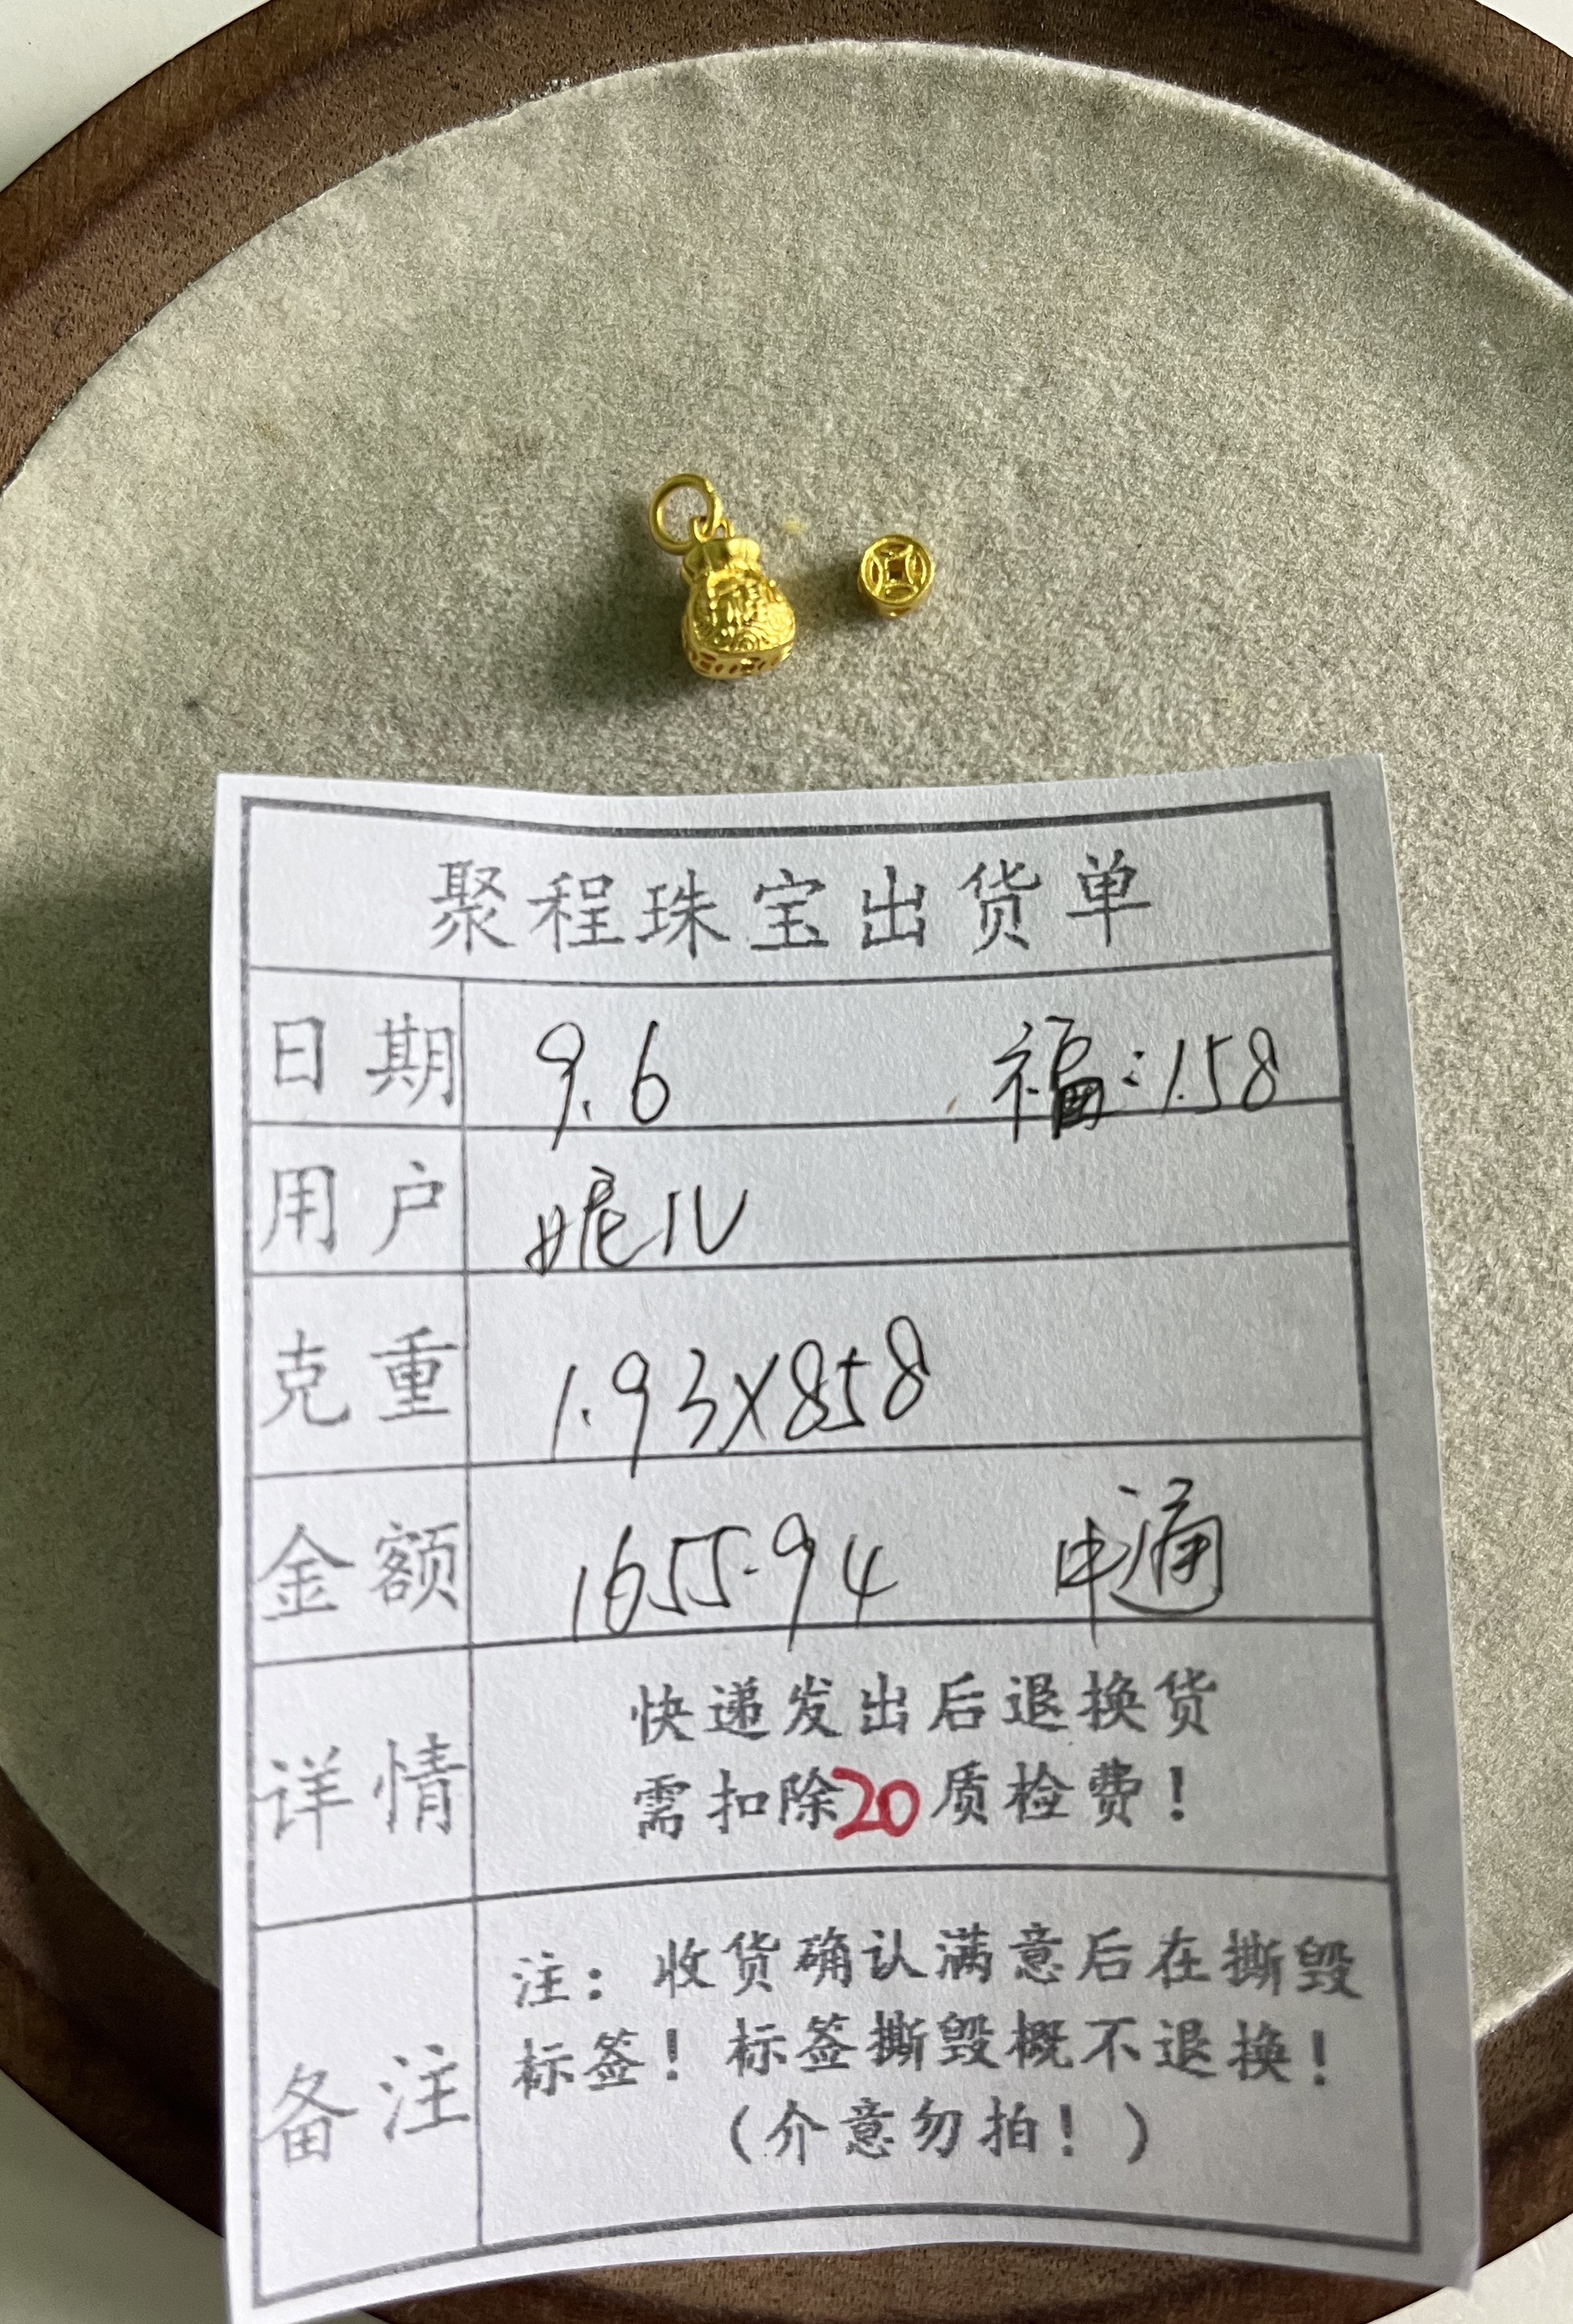 聚程珠宝出货单
日期 9.6 福:1.58
用户 妮儿
克重 1.93×858
金额 1655.94 申通
详情 快递发出后退换货
需扣除20质检费!
备注 注:收货确认满意后在撕毁
标签!标签撕毁概不退换!
(介意勿拍!)